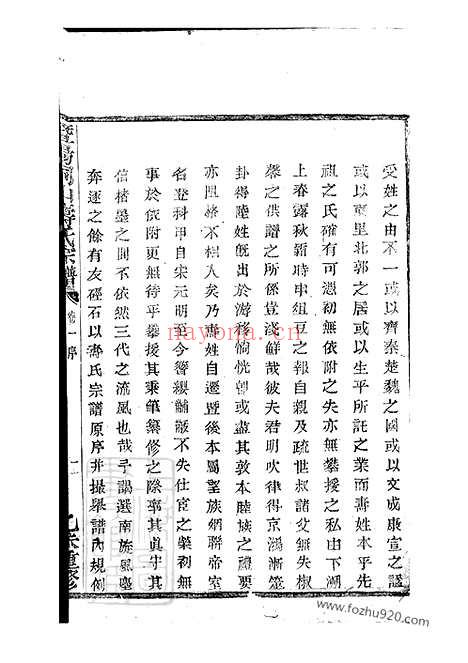 受姓之由不一或以齊秦楚魏之國或以文成康宣之諡
或以東里北郭之居或以生平所託之業而壽姓本乎先
祖之氏確有可憑初無依附之失亦無攀援之私由下湖
上春露秋霜時串俎豆之報自親及疏世叔諸父無失椒
蓼之供譜之所係豈淺鮮哉彼夫君明吹律得京鴻漸筮
卦得陸姓既出於游移愉恍朝或盡其敦本睦族之隱要
亦阻格不相入矣乃壽姓自遷暨後本屬望族網聯帝室
名登科甲自宋元明至今簪纓黼黻不失仕宦之榮初無
事於依附更無待乎攀援其秉筆纂修之際寧其眞守其
信楮墨之間不依然三代之流風也哉予謁選南旋風塵
奔逐之餘有友經石以壽氏宗譜原序并撮舉譜內規例
氏宗譜 卷一 序
重修
nayona.cn
www.fozhu920.com